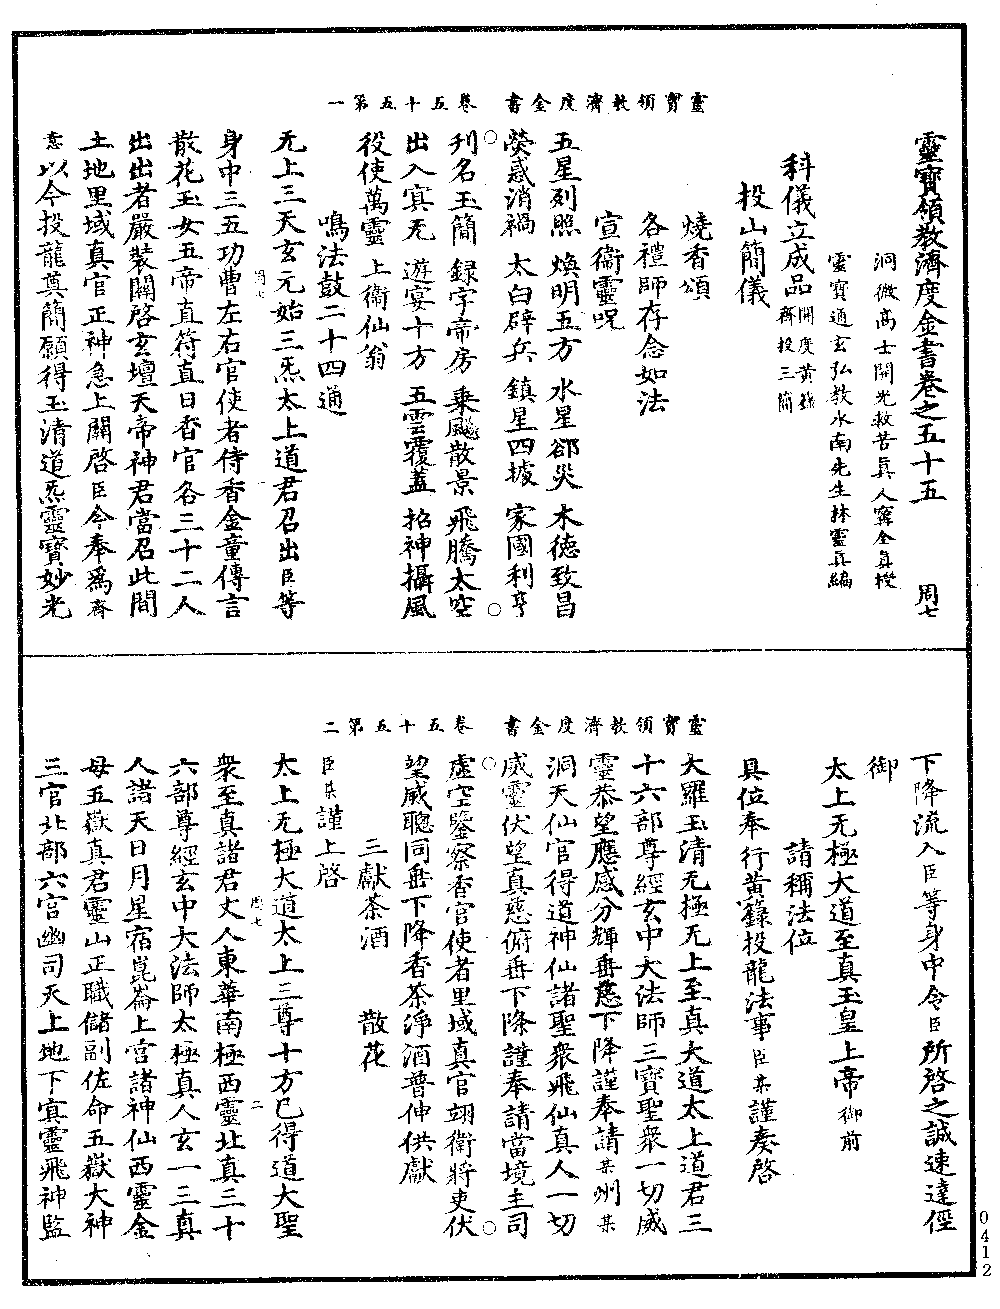 靈寶領教濟度金書 卷五十五第一
靈寶領教濟度金書卷之五十五 周七
洞微高士開光救苦真人甯全真授
靈寶通玄弘教水南先生林靈真編
科儀立成品 開度黃籙齋投三簡
投山簡儀
燒香頌
各禮師存念如法
宣衞靈呪
五星列照 煥明五方 水星郤災 木德致昌
熒惑消禍 太白辟兵 鎮星四據 家國利亨
刋名玉簡 録字帝房 乗飈散景 飛騰太空
出入冥无 遊宴十方 五雲覆蓋 招神攝風
役使萬靈 上衞仙翁
鳴法鼓二十四通
无上三天玄元始三炁太上道君召出臣等
周七
身中三五功曹左右官使者侍香金童傳言
散花玉女五帝直符直日香官各三十二人
出出者嚴裝關啓玄壇天帝神君當召此間
土地里域真官正神急上關啓臣今奉爲齋
意以今投龍奠簡願得玉清道炁靈寶妙光
靈寶領教濟度金書 卷五十五第二
下降流入臣等身中令臣所啓之誠速達徑
御
太上无極大道至真玉皇上帝御前
請稱法位
具位奉行黃籙投龍法事臣某謹奏啓
大羅玉清无極无上至真大道太上道君三
十六部尊經玄中大法師三寶聖衆一切威
靈恭望應感分輝垂慈下降謹奉請某州某
洞天仙官得道神仙諸聖衆飛仙真人一切
威靈伏望真慈俯垂下降謹奉請當境主司
虛空鑒察香官使者里域真官翊衞將吏伏
望威聰同垂下降香茶淨酒普伸供獻
三獻茶酒 散花
臣某謹上啓
太上无極大道太上三尊十方已得道大聖
周七 二
衆至真諸君丈人東華南極西靈北真三十
六部尊經玄中大法師太極真人玄一三真
人諸天日月星宿崑崙上宮諸神仙西靈金
母五嶽真君靈山正職儲副佐命五嶽大神
三官北部六宮幽司天上地下冥靈飛神監
0412